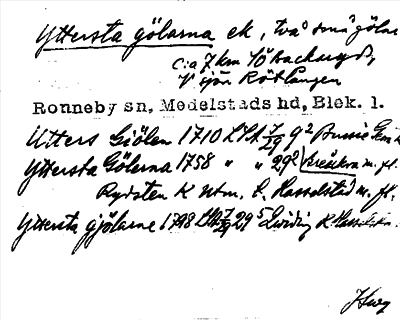 Yttersta gölarna ek, två små gölar
c:a 7 km SÖ Backaryd,
V sjön Rötlången
Ronneby sn, Medelstads hd, Blek. l.
Utters Giölen 1710 LSA 7/29 9²
Yttersta Gölerna 1758 " " 29² Bräkn m. fl.
Rydsten K utm. t. Hasselstad m. fl.
Yttersta gjölarne 1798 LSA 7/29 29⁵